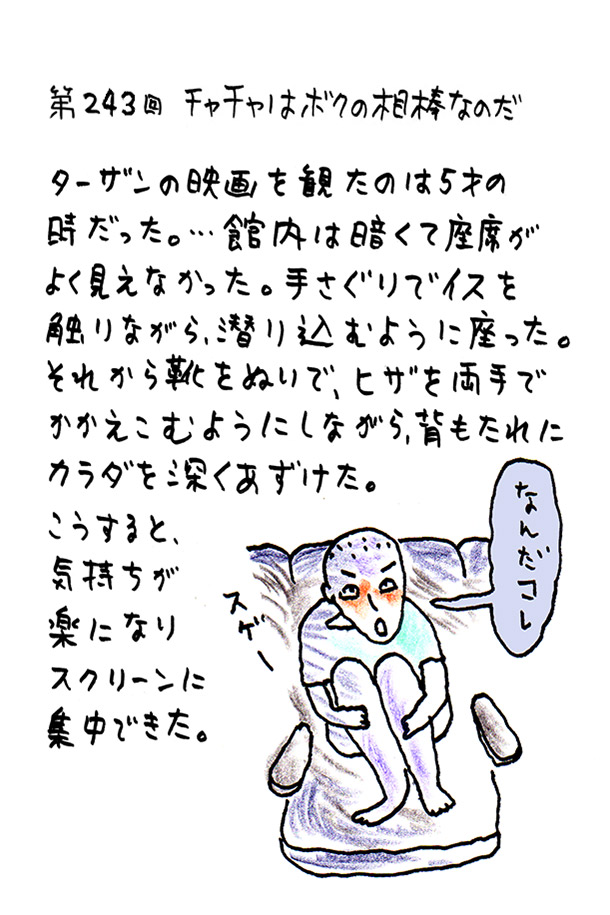 第243回 チャチャはボクの相棒なのだ
ターザンの映画を観たのは5才の
時だった。…館内は暗くて座席が
よく見えなかった。手さぐりでイスを
触りながら、潜り込むように座った。
それから靴をぬいで、ヒザを両手で
かかえこむようにしながら、背もたれに
カラダを深くあずけた。
こうすると、
気持ちが
楽になり
スクリーンに
集中できた。
なんだコレ
スゲー